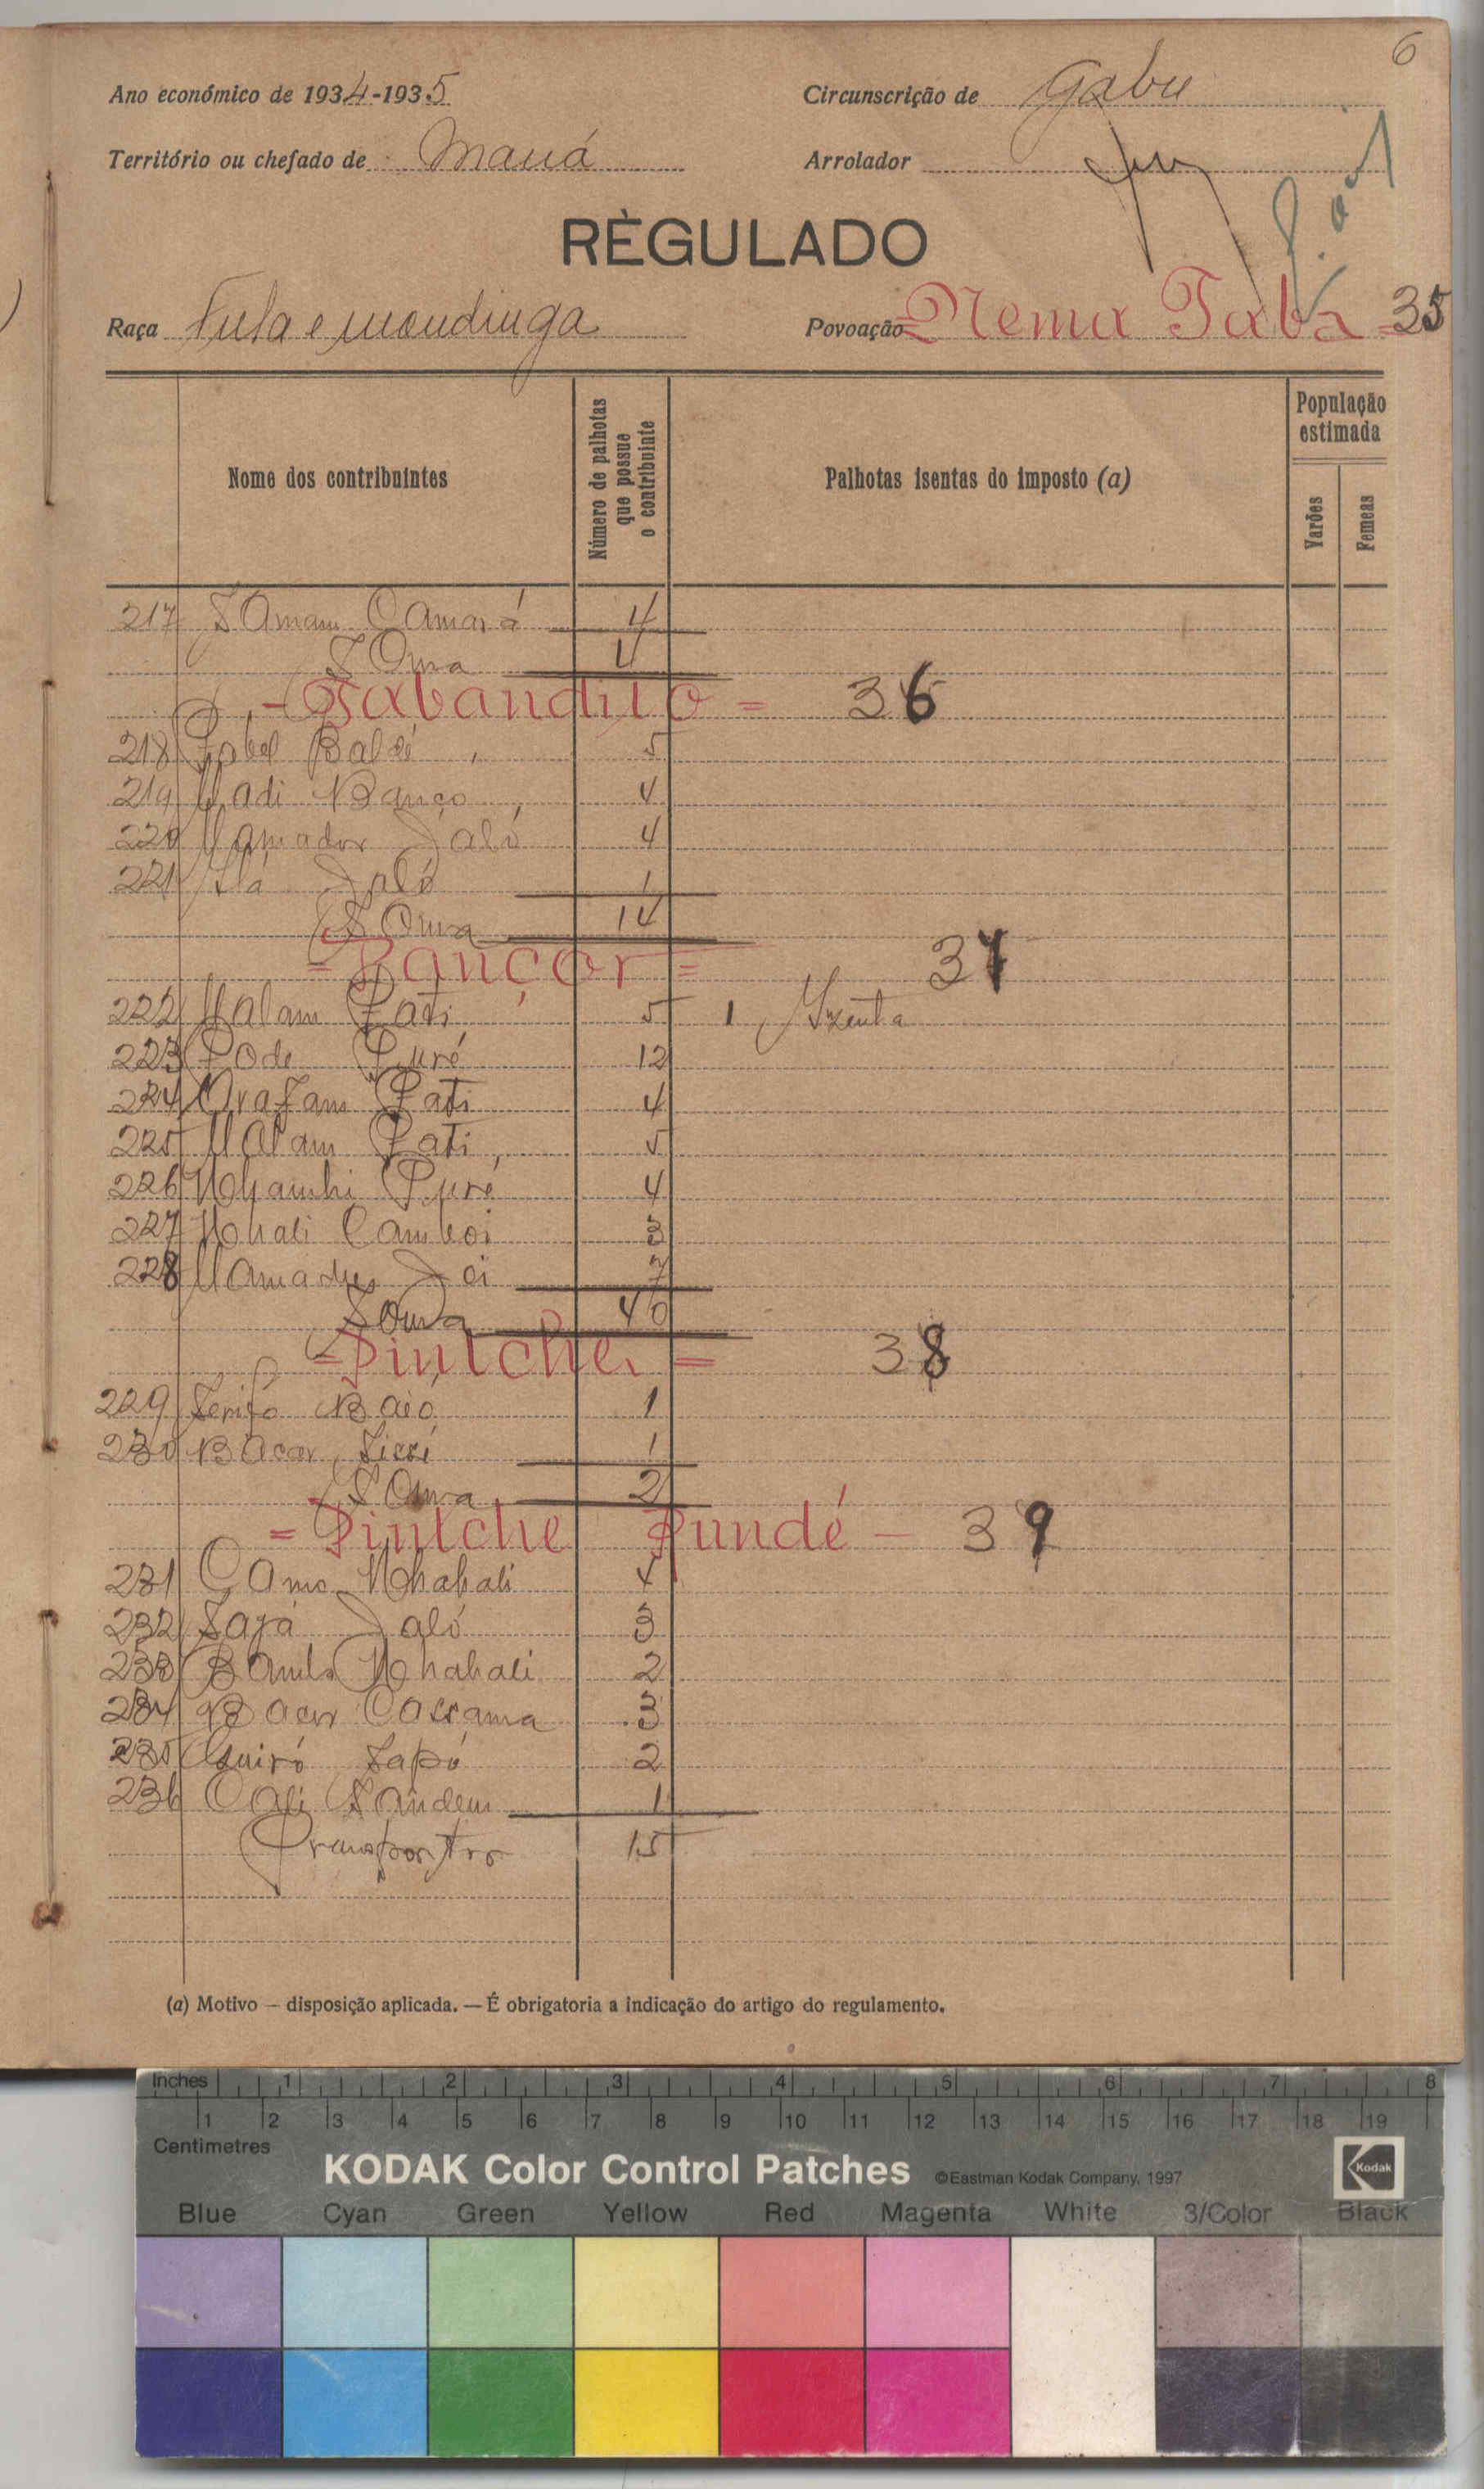 6
Ano económico de 1934-1935 Circunscrição de Gabu
Território ou chefado de Maná Arrolador
RÈGULADO
Raça Fula e mandinga Povoação Nema Taba = 35
Nome dos contribuintes
Número de palhotas que possue o contribuinte
Palhotas isentas do imposto (a)
População estimada
Varões
Femeas
217 Samam Camará 4
Soma 4
= Tabandito = 36
218 Baldé 5
219 Sadi Banço 4
220 Mamador Jaló 4
221 Jaló 1
Soma 14
= Bançor = 37
222 Malam Fati 5 1 Izenta
223 Fode Turé 12
224 Fati 4
225 Malam Fati 5
226 Turé 4
227 Camboi 3
228 Mamadu 7
Soma 40
= Pintche = 38
229 Serifo Baió 1
230 Bacar Sissé 1
Soma 2
= Pintche Fundé - 39
231 Nhabali 4
232 Jaló 3
233 Nhabali 2
234 Bacar Cassama 3
235 2
236 Cali 1
Transporto 15
(a) Motivo — disposição aplicada. — É obrigatoria a indicação do artigo do regulamento.
Inches 1 2 3 4 5 6 7 8
1 2 3 4 5 6 7 8 9 10 11 12 13 14 15 16 17 18 19
Centimetres
KODAK Color Control Patches ©Eastman Kodak Company, 1997 Kodak
Blue Cyan Green Yellow Red Magenta White 3/Color Black